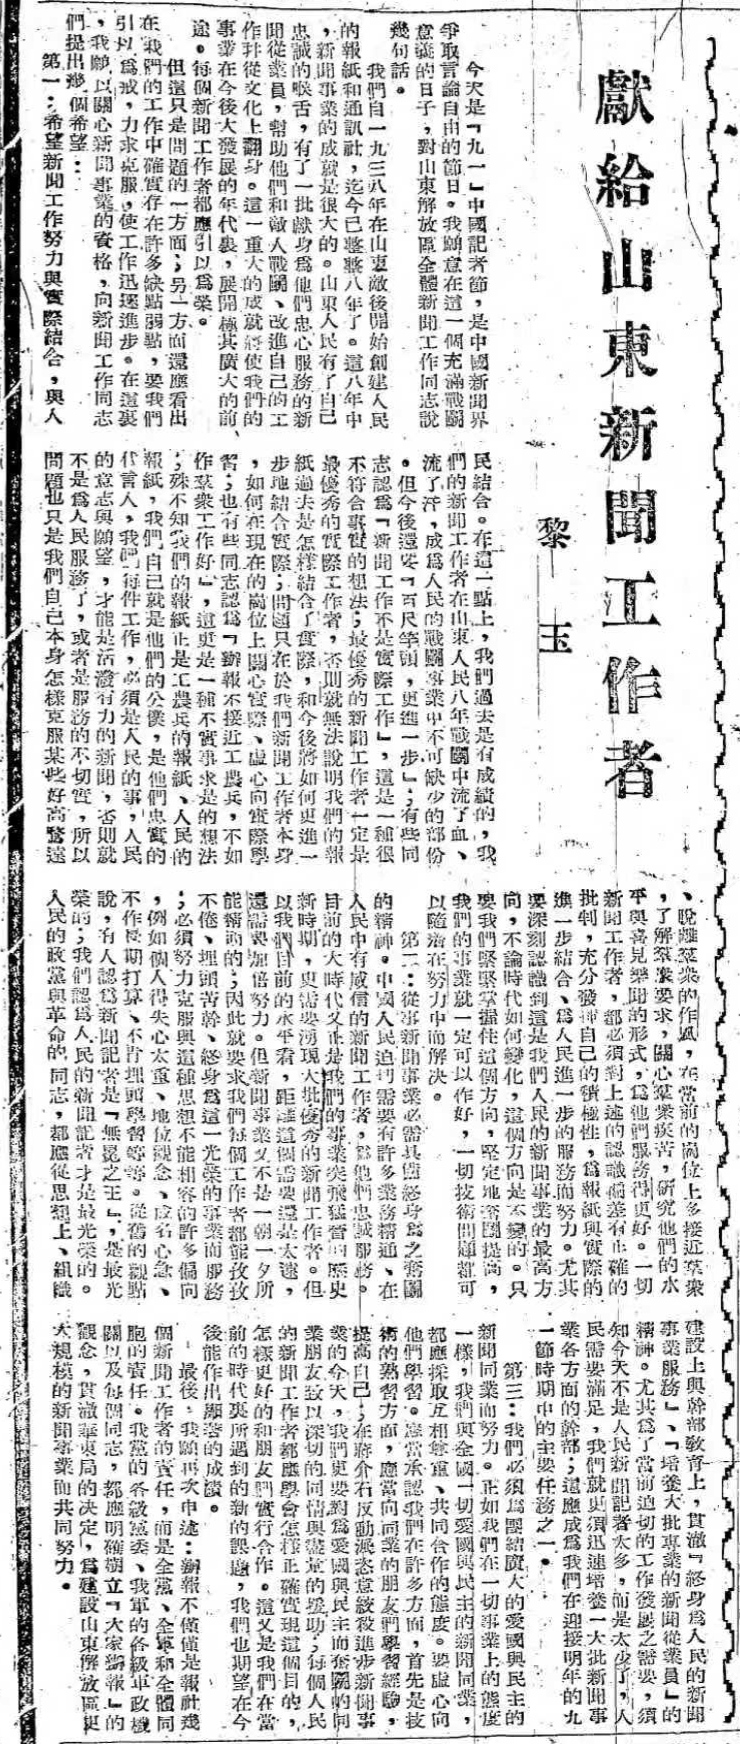 獻給山東新聞工作者
黎玉
今天是『九一』中國記者節，是中國新聞界
爭取言論自由的節日。我願意在這一個充滿戰鬪
意義的日子，對山東解放區全體新聞工作同志說
幾句話。
我們自一九三八年在山東敵後開始創建人民
的報紙和通訊社，迄今已整整八年了。這八年中
，新聞事業的成就是很大的。山東人民有了自己
忠誠的喉舌，有了一批獻身爲他們忠心服務的新
聞從業員，幫助他們和敵人戰鬪、改進自己的工
作幷從文化上翻身。這一重大的成就將使我們的
事業在今後大發展的年代裏，展開極其廣大的前
途。每個新聞工作者都應引以爲榮。
但這只是問題的一方面；另一方面還應看出
在我們的工作中確實存在許多缺點弱點，要我們
引以爲戒，力求克服，使工作迅速進步。在這裏
，我願以關心新聞事業的資格，向新聞工作同志
們提出幾個希望：
第一：希望新聞工作努力與實際結合，與人
民結合。在這一點上，我們過去是有成績的，我
們的新聞工作者在山東人民八年戰鬪中流了血、
流了汗，成爲人民的戰鬪事業中不可缺少的部份
。但今後還要『百尺竿頭，更進一步』；有些同
志認爲『新聞工作不是實際工作』，這是一種很
不符合事實的想法；最優秀的新聞工作者一定是
最優秀的實際工作者，否則就無法說明我們的報
紙過去是怎樣結合了實際，和今後將如何更進一
步地結合實際；問題只在於我們新聞工作者本身
，如何在現在的崗位上關心實際、虛心向實際學
習；也有些同志認爲『辦報不接近工農兵，不如
作羣衆工作好』，這更是一種不實事求是的想法
；殊不知我們的報紙正是工農兵的報紙、人民的
報紙，我們自己就是他們的公僕，是他們忠實的
代言人，我們每件工作，必須是人民的事，人民
的意志與願望，才能是活潑有力的新聞，否則就
不是爲人民服務了，或者是服務的不切實，所以
問題也只是我們自己本身怎樣克服某些好高騖遠
、脫離羣衆的作風，在當前的崗位上多接近羣衆
，了解羣衆要求，關心羣衆疾苦，研究他們的水
平與喜見樂聞的形式，爲他們服務得更好。一切
新聞工作者，都必須對上述的認識偏差有正確的
批判，充分發揮自己的積極性，爲報紙與實際的
進一步結合、爲人民進一步的服務而努力。尤其
要深刻認識到這是我們人民的新聞事業的最高方
向，不論時代如何變化，這個方向是不變的。只
要我們緊緊掌握住這個方向，堅定地奮鬪提高，
我們的事業就一定可以作好，一切技術問題都可
以隨着在努力中而解決。
第二：從事新聞事業必需具備終身爲之奮鬪
的精神。中國人民迫切需要有許多業務精通、在
人民中有威信的新聞工作者，爲他們忠誠服務。
目前的大時代又正是我們的事業突飛猛晋的歷史
新時期，更需要湧現大批優秀的新聞工作者。但
以我們目前的水平看，距離這個需要還是太遠，
還需要加倍努力。但新聞事業又不是一朝一夕所
能精通的；因此就要求我們每個工作者都能孜孜
不倦、埋頭苦幹、終身爲這一光榮的事業而服務
；必須努力克服與這種思想不能相容的許多偏向
，例如個人得失心太重、地位觀念、成名心急、
不作長期打算、不肯埋頭學習等等。從舊的觀點
說，有人認爲新聞記者是『無冕之王』，是最光
榮的；我們認爲人民的新聞記者才是最光榮的。
人民的政黨與革命的同志，都應從思想上、組織
建設上與幹部敎育上，貫澈『終身爲人民的新聞
事業服務』、『培養大批專業的新聞從業員』的
精神。尤其爲了當前迫切的工作發展之需要，須
知今天不是人民新聞記者太多，而是太少了，人
民需要滿足，我們就更須迅速培養一大批新聞事
業各方面的幹部；這應成爲我們在迎接明年的九
一節時期中的主要任務之一。
第三：我們必須爲團結廣大的愛國與民主的
新聞同業而努力。正如我們在一切事業上的態度
一樣，我們與全國一切愛國與民主的新聞同業，
都應採取互相尊重、共同合作的態度。要虛心向
他們學習。應當承認我們在許多方面，首先是技
術的熟習方面，應當向同業的朋友們學習經驗，
提高自己；在蔣介石反動派恣意綏被進步新聞事
業的今天，我們更要對爲愛國與民主而奮鬪的同
業朋友致以深切的同情與盡量的援助；每個人民
的新聞工作者都應學會怎樣正確實現這個目的，
怎樣更好的和朋友們實行合作。這又是我們在當
前的時代裏所遇到的新的課題，我們也期望在今
後能作出顯著的成績。
最後，我願再次申述：辦報不僅僅是報社幾
個新聞工作者的責任，而是全黨、全軍和全體同
胞的責任。我黨的各級黨委、我軍的各級軍政機
關以及每個同志，都應明確樹立『大家辦報』的
觀念，貫澈華東局的決定，爲建設山東解放區更
大規模的新聞事業而共同努力。